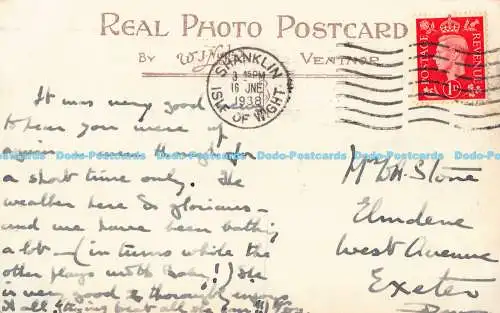 REAL PHOTO POSTCARD
BY W.J. Nigh VENTNOR
SHANKLIN
3 45PM
16 JNE
1938
ISLE OF WIGHT
POSTAGE REVENUE
1D
It was very good
to hear you were up
again even though for
a short time only. The
weather here is glorious
and we have been bathing
a lot – (in turns while the
other plays with Baby!) She
is very good & thoroughly enjoys
it all
Mrs D.H. Stone
Elmdene
West Avenue
Exeter
Dodo-Postcards Dodo-Postcards Dodo-Postcards Dodo-Postcards Dodo-Postcards
Dodo-Postcards Dodo-Postcards Dodo-Postcards Dodo-Postcards Dodo-Postcards